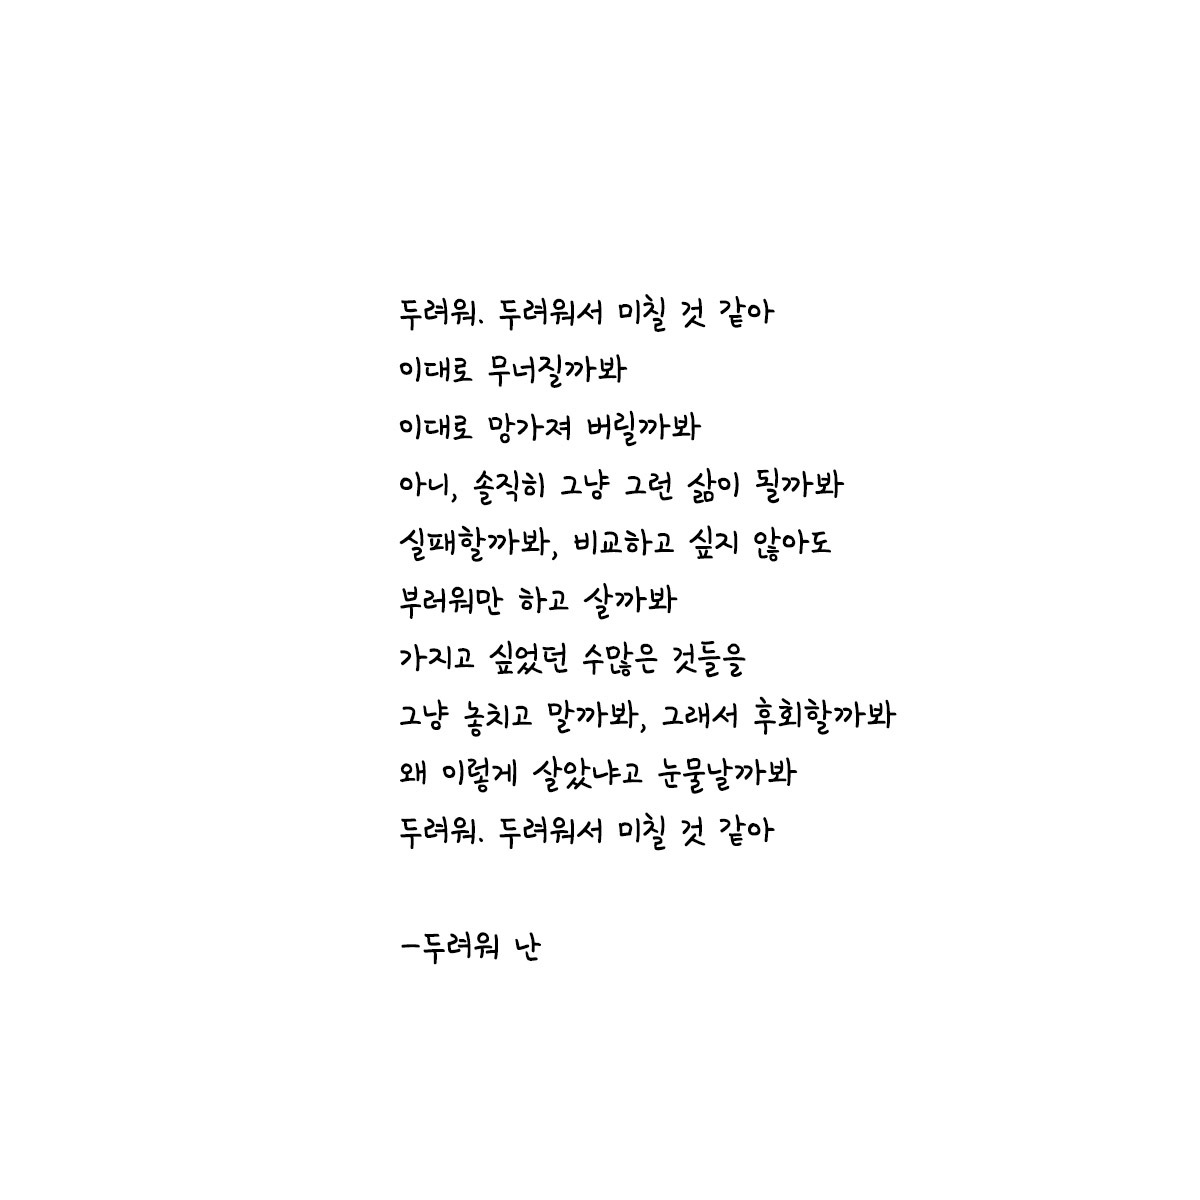 두려워. 두려워서 미칠 것 같아
이대로 무너질까봐
이대로 망가져 버릴까봐
아니, 솔직히 그냥 그런 삶이 될까봐
실패할까봐, 비교하고 싶지 않아도
부러워만 하고 살까봐
가지고 싶었던 수많은 것들을
그냥 놓치고 말까봐, 그래서 후회할까봐
왜 이렇게 살았냐고 눈물날까봐
두려워. 두려워서 미칠 것 같아
-두려워 난